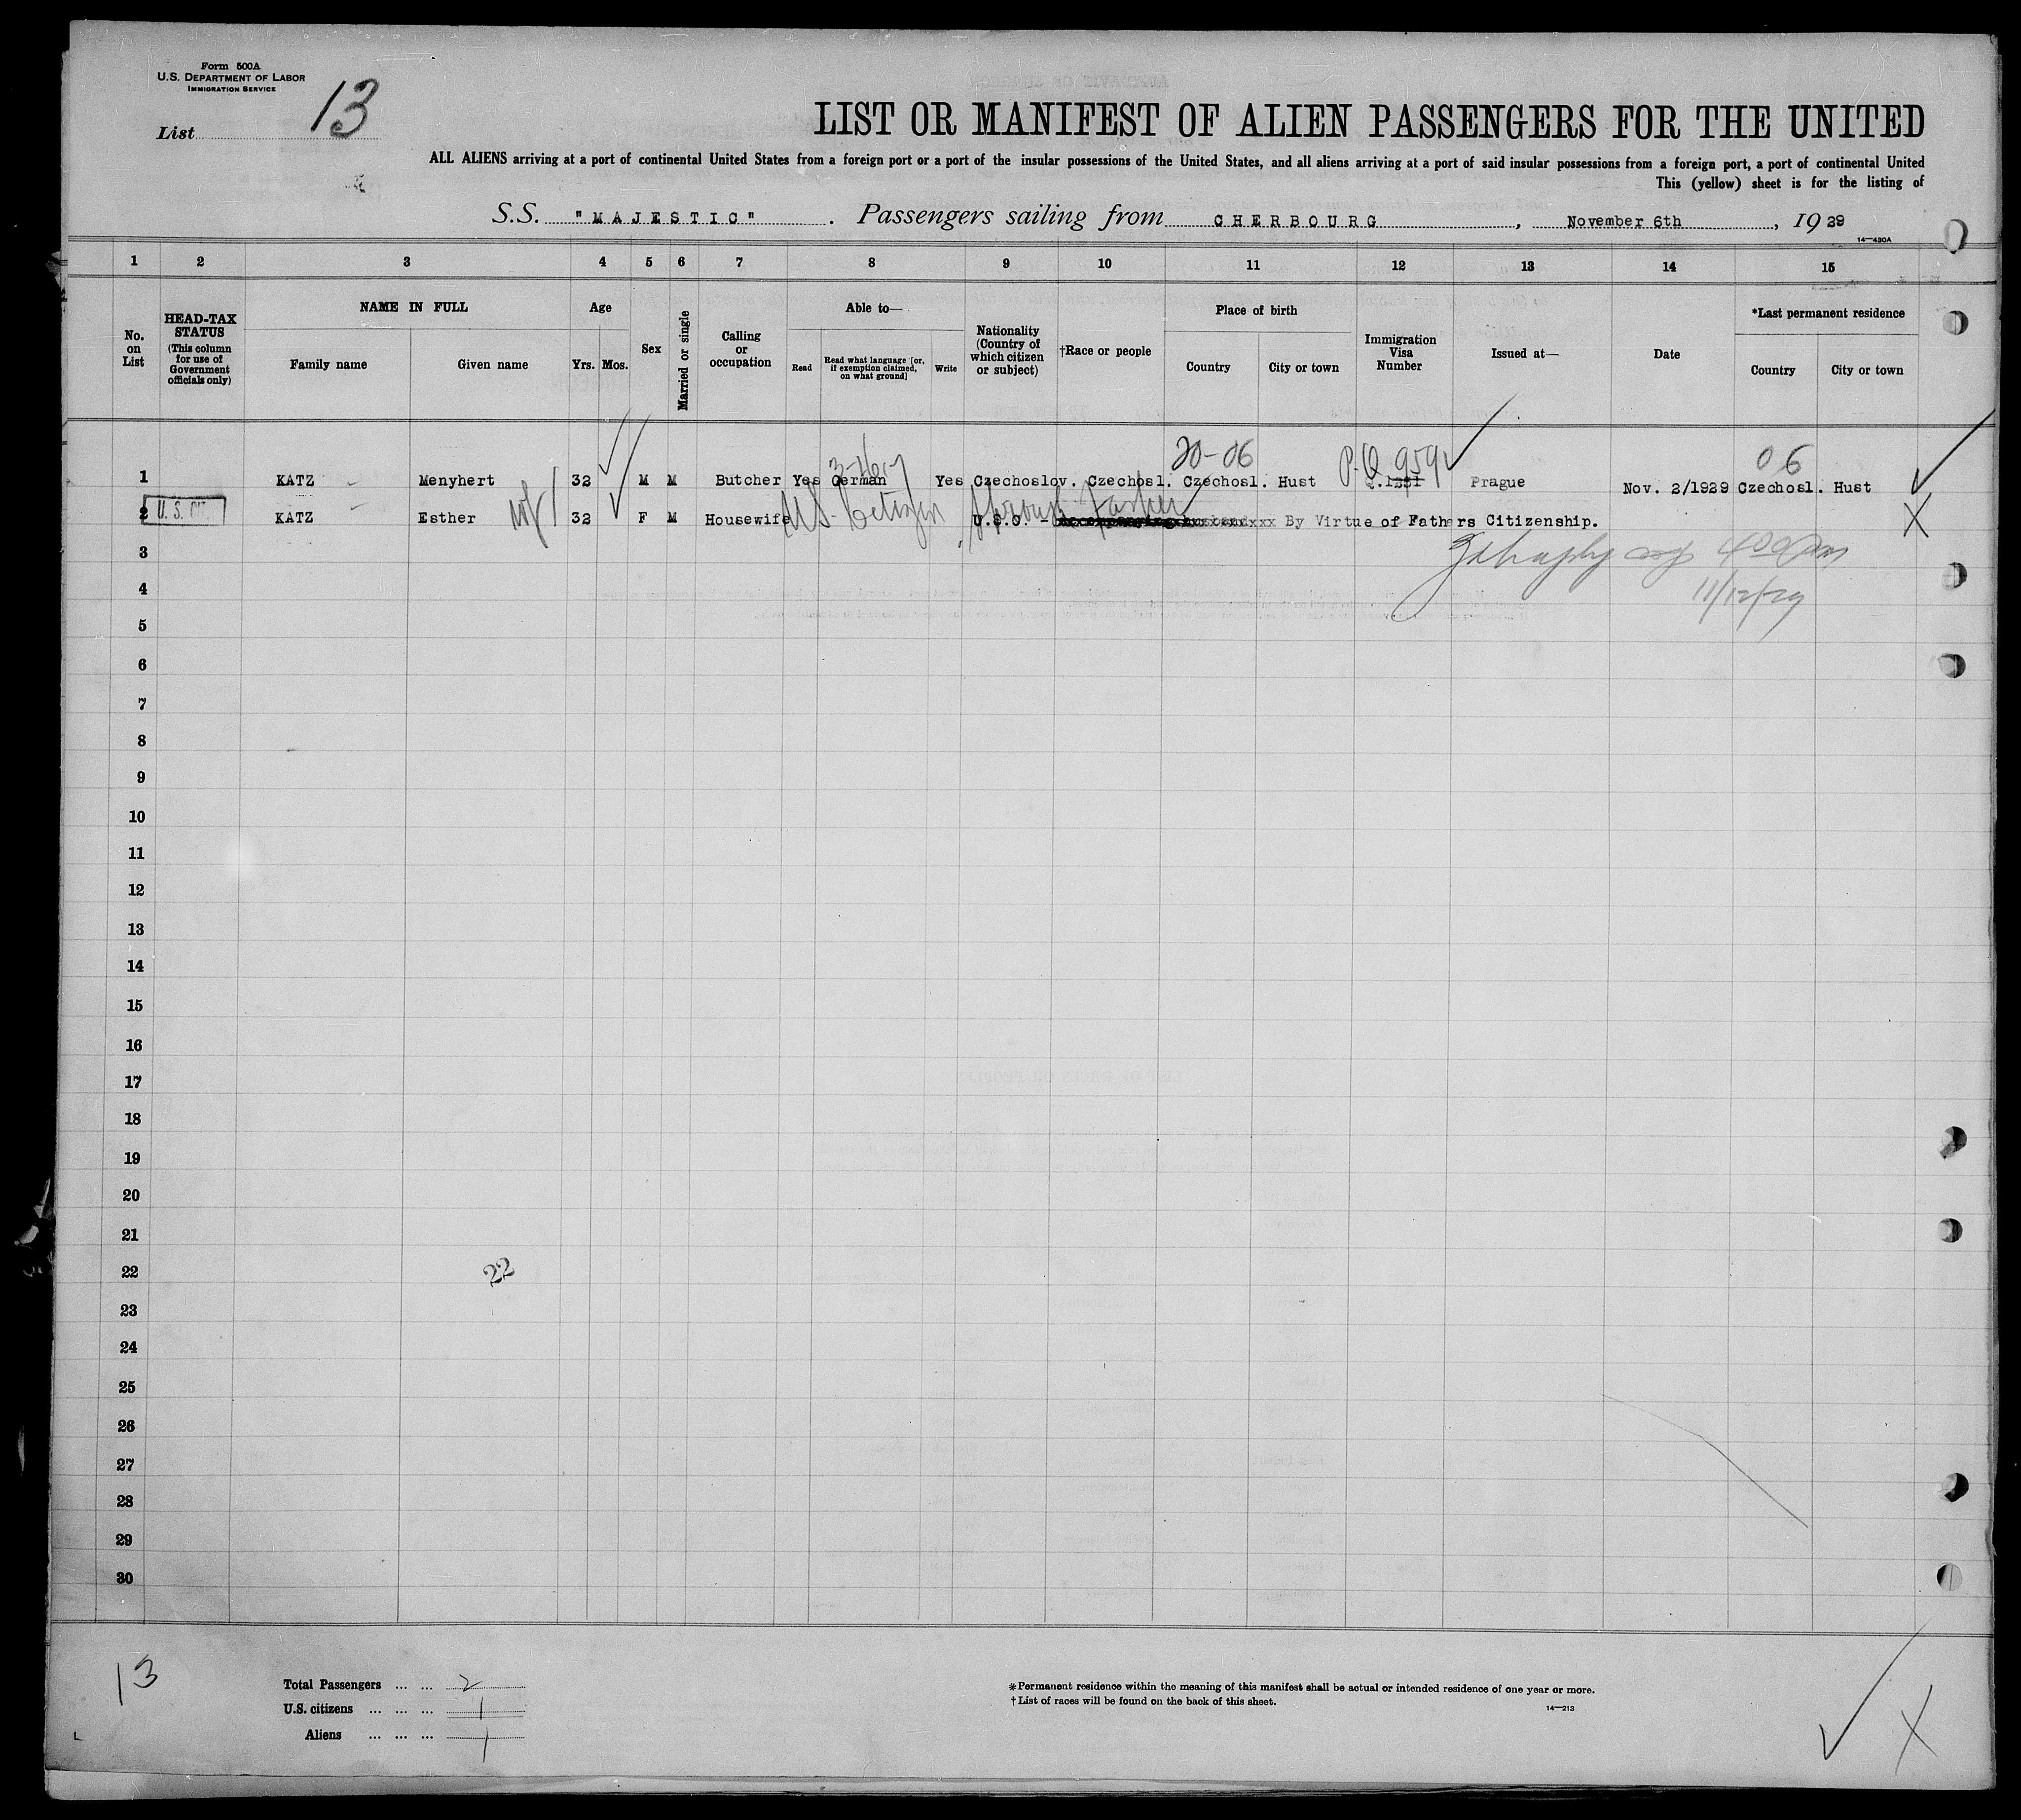 Form 500A
U.S. DEPARTMENT OF LABOR
IMMIGRATION SERVICE
List 13
LIST OR MANIFEST OF ALIEN PASSENGERS FOR THE UNITED
ALL ALIENS arriving at a port of continental United States from a foreign port or a port of the insular possessions of the United States, and all aliens arriving at a port of said insular possessions from a foreign port, a port of continental United
This (yellow) sheet is for the listing of
S.S. "MAJESTIC". Passengers sailing from CHERBOURG, November 6th, 1929
14—430A
1 2 3 4 5 6 7 8 9 10 11 12 13 14 15
No. on List
HEAD-TAX STATUS (This column for use of Government officials only)
NAME IN FULL
Family name
Given name
Age
Yrs. Mos.
Sex
Married or single
Calling or occupation
Able to—
Read
Read what language [or, if exemption claimed, on what ground]
Write
Nationality (Country of which citizen or subject)
†Race or people
Place of birth
Country
City or town
Immigration Visa Number
Issued at—
Date
*Last permanent residence
Country
City or town
20-06 P.Q 959 06
1 KATZ Menyhert 32 M M Butcher Yes German Yes Czechoslov. Czechosl. Czechosl. Hust Prague Nov. 2/1929 Czechosl. Hust
U.S. CIT.
US. Citizen through Father
2 KATZ Esther wf 32 F M Housewife U.S.C. - By Virtue of Fathers Citizenship.
X
11/12/29
3
4
5
6
7
8
9
10
11
12
13
14
15
16
17
18
19
20
21
22
22
23
24
25
26
27
28
29
30
13
Total Passengers ... ... 2
U.S. citizens ... ... ... 1
Aliens ... ... ... 1
*Permanent residence within the meaning of this manifest shall be actual or intended residence of one year or more.
†List of races will be found on the back of this sheet.
14—213
X